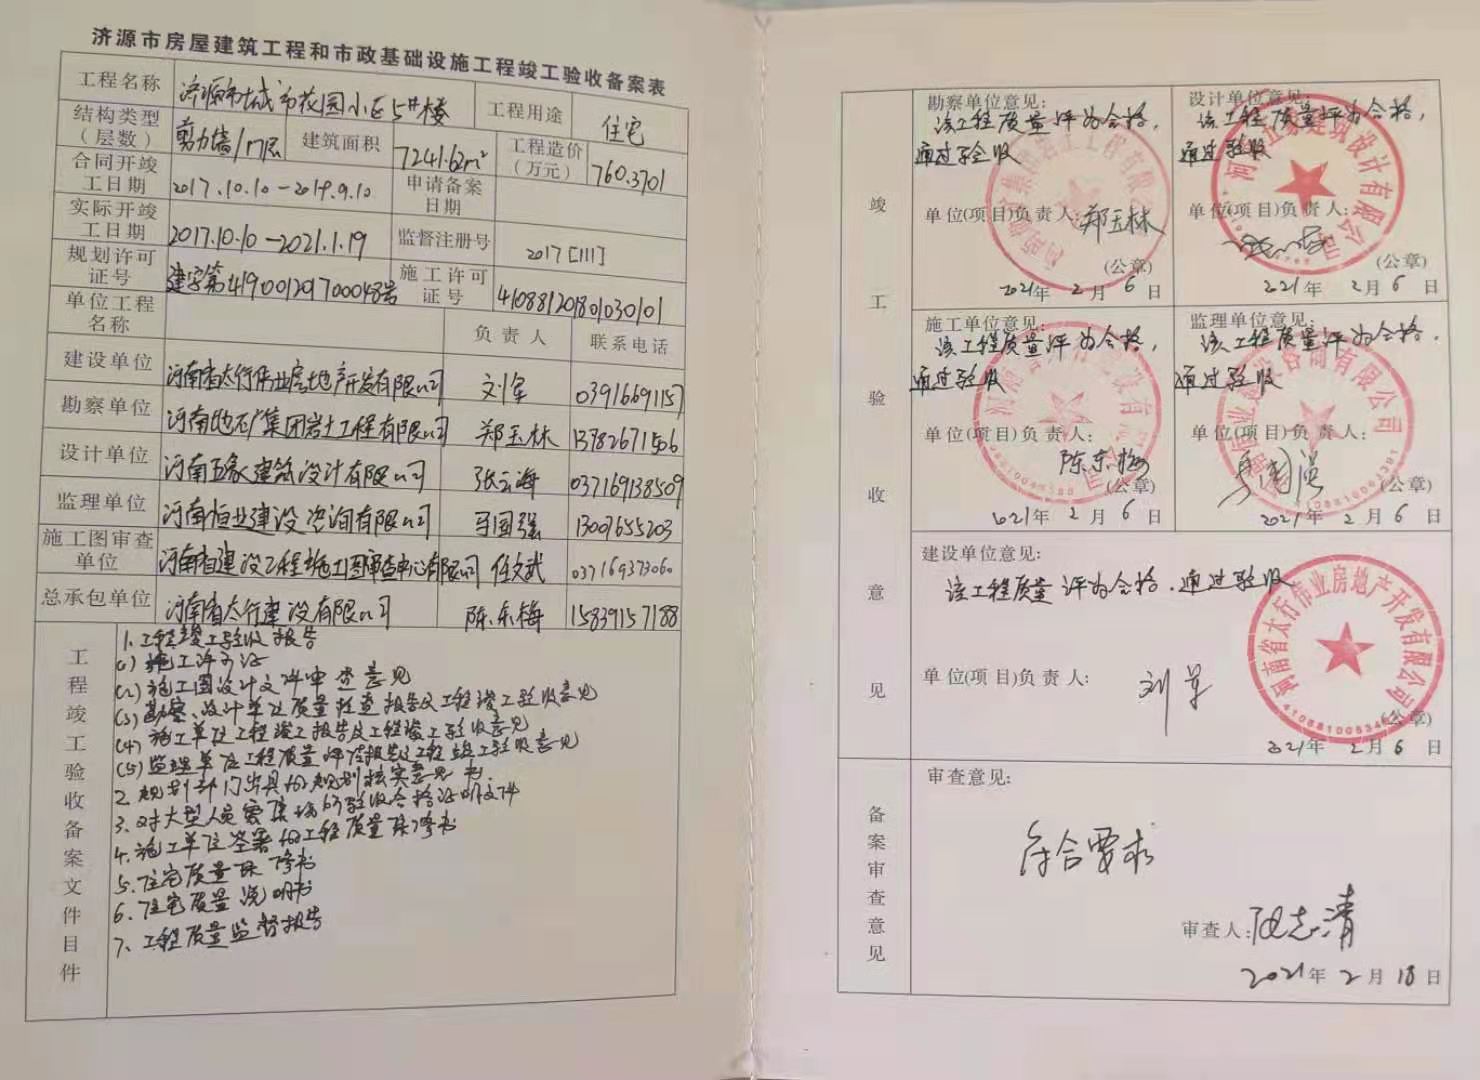 济源市房屋建筑工程和市政基础设施工程竣工验收备案表
工程名称 济源市城市花园小区5#楼 工程用途 住宅
结构类型（层数） 剪力墙/17层 建筑面积 7241.62m² 工程造价（万元） 760.3701
合同开竣工日期 2017.10.10-2019.9.10 申请备案日期
实际开竣工日期 2017.10.10-2021.1.19 监督注册号 2017[111]
规划许可证号 建字第419001201700048号 施工许可证号 410881201801030101
单位工程名称 负责人 联系电话
建设单位 河南省太行伟业房地产开发有限公司 刘军 03916691157
勘察单位 河南地矿集团岩土工程有限公司 郑玉林 13782671506
设计单位 河南五象建筑设计有限公司 张云海 037169138509
监理单位 河南恒业建设咨询有限公司 马国强 13007655203
施工图审查单位 河南省建设工程施工图审查中心有限公司 任文武 037169373060
总承包单位 河南省太行建设有限公司 陈东梅 15839157188
工程竣工验收备案文件目件
1.工程竣工验收报告
(1)施工许可证
(2)施工图设计文件审查意见
(3)勘察、设计单位质量检查报告及工程竣工验收意见
(4)施工单位工程竣工报告及工程竣工验收意见
(5)监理单位工程质量评估报告及工程竣工验收意见
2.规划部门出具的规划核实意见书.
3.对大型人员密集场所验收合格证明文件
4.施工单位签署的工程质量保修书
5.住宅质量保修书
6.住宅质量说明书
7.工程质量监督报告
竣工验收意见
勘察单位意见:
该工程质量评为合格,
通过验收
单位(项目)负责人:郑玉林
(公章)
2021年2月6日
设计单位意见:
该工程质量评为合格,
通过验收
单位(项目)负责人:
(公章)
2021年2月6日
施工单位意见:
该工程质量评为合格,
通过验收
单位(项目)负责人:
陈东梅
2021年2月6日
监理单位意见:
该工程质量评为合格.
通过验收
单位(项目)负责人:
马国强
(公章)
2021年2月6日
建设单位意见:
该工程质量评为合格.通过验收
单位(项目)负责人: 刘军
河南省太行伟业房地产开发有限公司
(公章)
2021年2月6日
备案审查意见
审查意见:
符合要求
审查人:
2021年2月18日